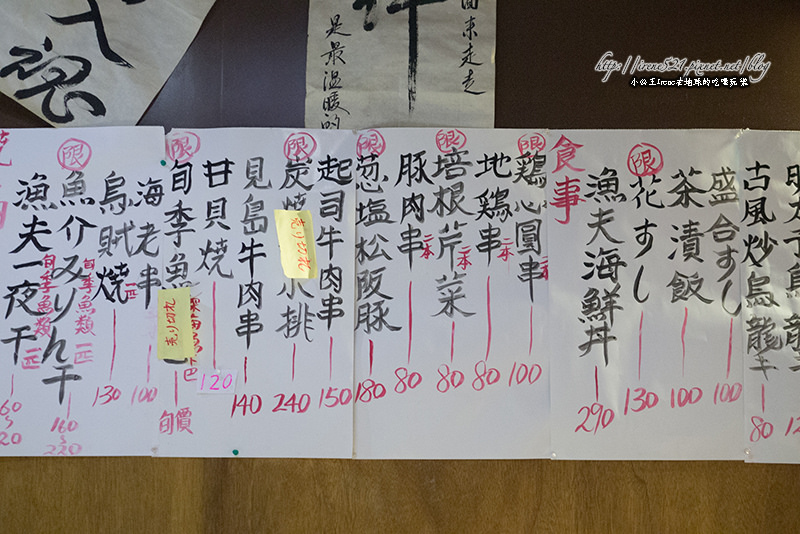 回来走走
是最温暖的
http://irene521.pixnet.net/blog
小公主Irene去地球的吃喝玩樂
食事
明太子烏龍
古風炒烏龍 80
盛合すし 100
茶漬飯 100
限 花すし 130
漁夫海鮮丼 290
限 鶏心圓串 二本 100
地鶏串 二本 80
限 培根芹菜 80
豚肉串 二本 80
限 葱塩松阪豚 180
起司牛肉串 150
限 炭燒 排 240
売り切れ
見島牛肉串 140
甘貝燒 120
限 旬季魚 下巴 旬價
売り切れ
海老串 100
烏賊燒 一匹 130
限 魚介みりん干 旬季魚類 一匹 160~220
漁夫一夜干 旬季魚類 一匹